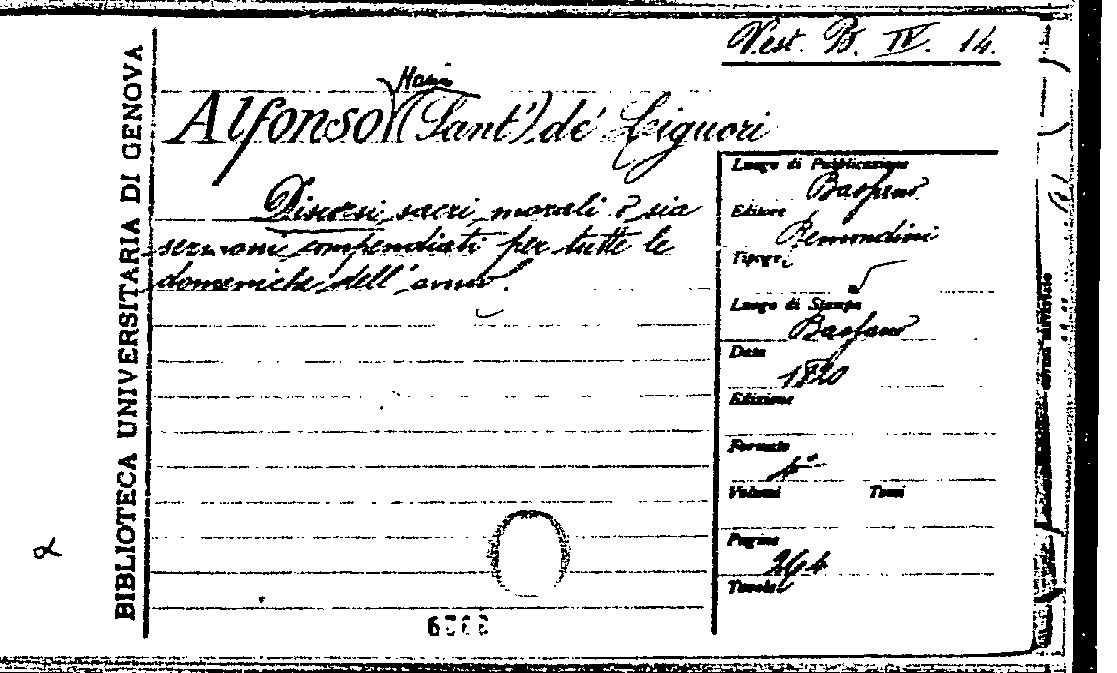 Vest. B. IV. 14.
BIBLIOTECA UNIVERSITARIA DI GENOVA
Maria
Alfonso (Sant') de' Liguori
Discorsi sacri morali o sia
sermoni compendiati per tutte le
domeniche dell'anno.
Luogo di Pubblicazione
Bassano
Editore
Remondini
Tipogr.
Luogo di Stampa
Bassano
Data
1820
Edizione
Formato
4°
Volumi Tomi
Pagine
264
Tavole